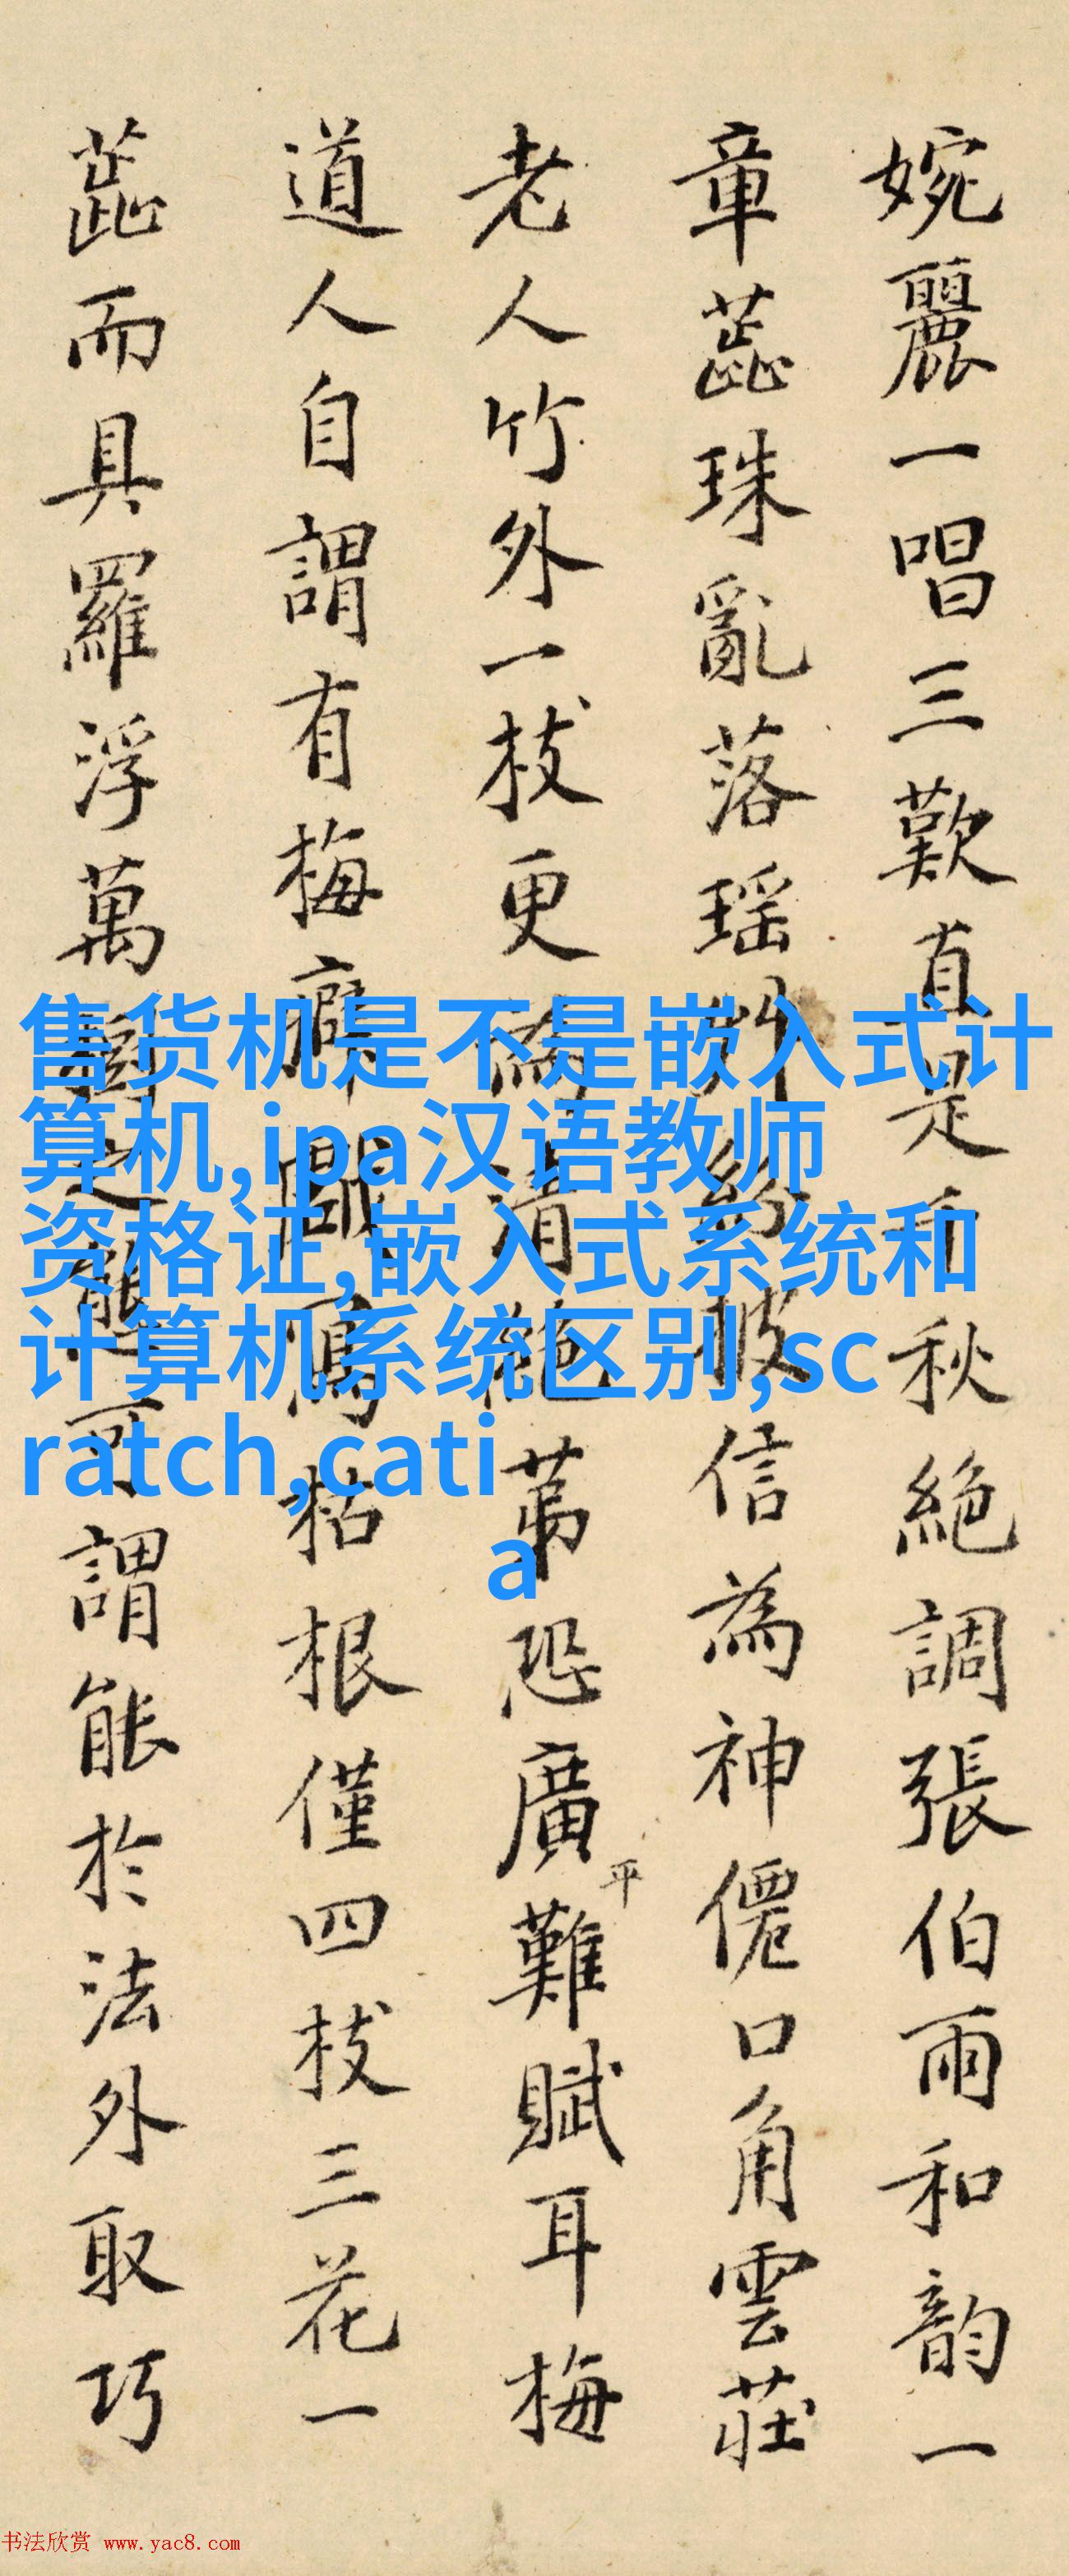 婉麗一唱三歎真是千秋絕調張伯雨和韻一
章蕋珠亂落瑶 信為神僊口角雲莊
老人竹外一枝更 清絕苐恐廣平難賦耳梅
道人自謂有梅癖 寫枯根僅四枝三花一
蕋而具羅浮萬 可謂能於法外取巧
售货机是不是嵌入式计
算机,ipa汉语教师
资格证,嵌入式系统和
计算机系统区别,sc
ratch,cati
a
书法欣赏 www.yac8.com